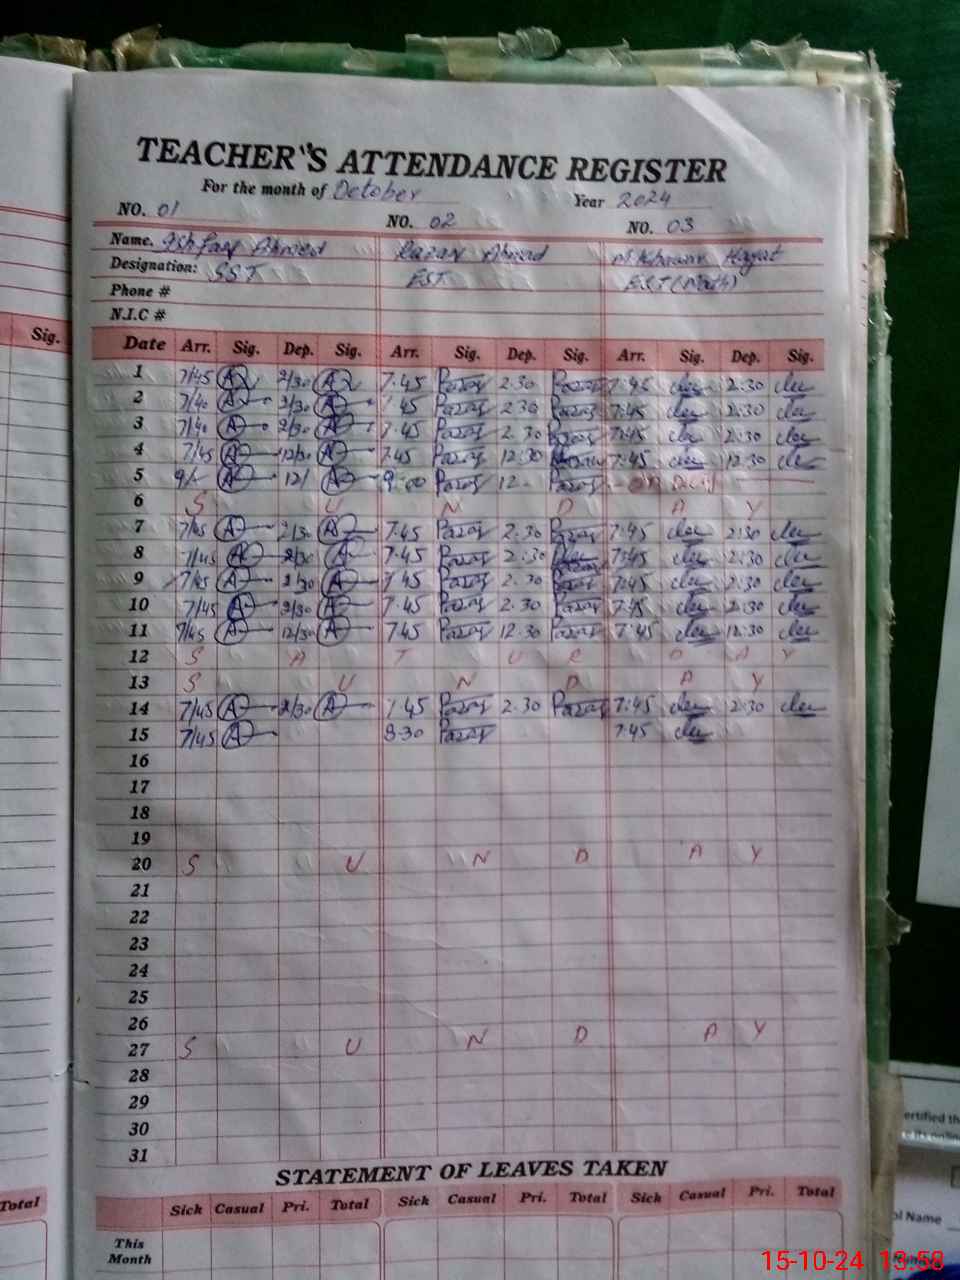 TEACHER"S ATTENDANCE REGISTER
For the month of October Year 2024
NO. 01 NO. 02 NO. 03
Name. Ishfaq Ahmed Ahmad Hayat
Designation: SST EST EST (Math)
Phone #
N.I.C #
Sig.
Date Arr. Sig. Dep. Sig. Arr. Sig. Dep. Sig. Arr. Sig. Dep. Sig.
1 7/45 2/30 7.45 2.30 7:45 2:30
2 7/40 2/30 7.45 2.30 7:45 2:30
3 7/40 2/30 7.45 2.30 7:45 2:30
4 7/45 12/30 7.45 12.30 7:45 12:30
5 9/- 12/ 9:00 12-
6 S U N D A Y
7 7/45 2/30 7.45 2.30 7:45 2:30
8 7/45 2/30 7.45 2:30 7:45 2:30
9 7/45 2/30 7.45 2.30 7:45 2:30
10 7/45 2/30 7.45 2.30 7:45 2:30
11 7/45 12/30 7.45 12.30 7:45 12:30
12 S A T U R D A Y
13 S U N D A Y
14 7/45 2/30 7.45 2.30 7:45 2:30
15 7/45 8.30 7:45
16
17
18
19
20 S U N D A Y
21
22
23
24
25
26
27 S U N D A Y
28
29
30
31
STATEMENT OF LEAVES TAKEN
Total
Sick Casual Pri. Total Sick Casual Pri. Total Sick Casual Pri. Total
This
Month
ertified th
ol Name
15-10-24 13:58